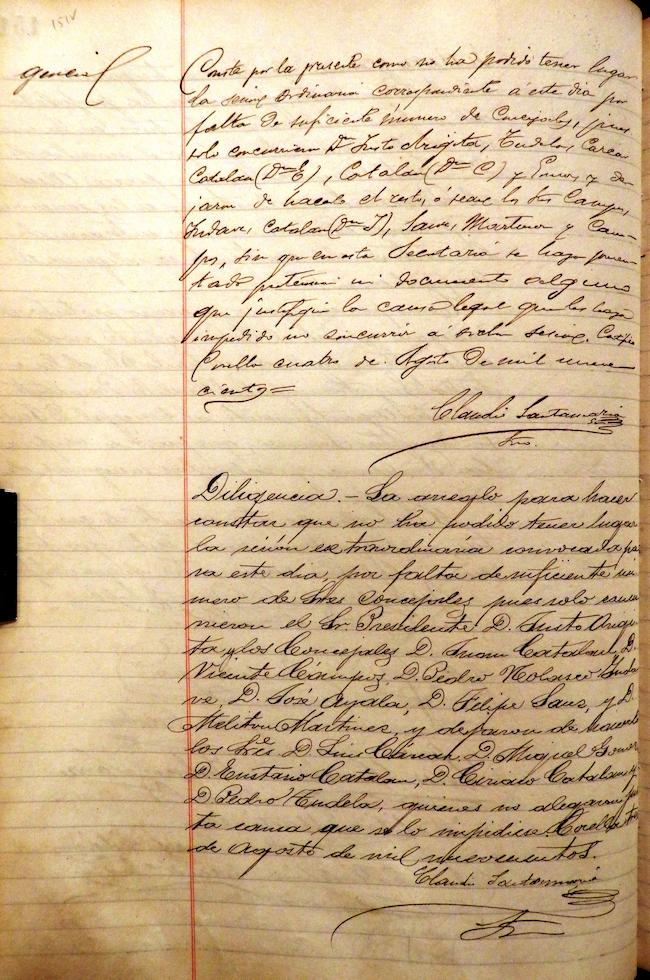 151v
gencia
Conste por la presente como no ha podido tener lugar
la sesion ordinaria correspondiente a este dia por
falta de suficiente número de Concejales, pues
solo concurrieron Dn Justo Arigita, Tudela, Carcar
Catalan (Dn E), Catalán (Dn C) y y de
jaron de hacerlo el resto, ó sean los Sres Campos,
Indave, Catalan (Dn J), Sanz, Martinez y Cam
pos, sin que en esta Secretaria se haya presen
tado ni documento alguno
que justifique la causa legal que les haya
impedido no concurrir á dicha sesion. Certifico
Corella cuatro de Agosto de mil nueve
cientos=
Claudio Santamaria
Srio.
Diligencia.- La arreglo para hacer
constar que no ha podido tener lugar
la sesión extraordinaria convocada pa
ra este dia, por falta de suficiente nú
mero de Sres Concejales pues solo concu
rrieron el Sr. Presidente D. Justo Arigi
ta y los Concejales D. Juan Catalan, D.
Vicente Campos, D. Pedro Nolasco Inda
ve, D. José Ayala, D. Felipe Sanz, y D.
Meliton Martinez, y dejaron de hacerlo
los Sres D. Luis Cárcar, D. Miguel Gomez
D. Eustasio Catalan, D. Ciriaco Catalan y
D. Pedro Tudela, quienes no alegaron jus
ta causa que se lo impidiese Corella
de Agosto de mil novecientos.
Claudio Santamaria